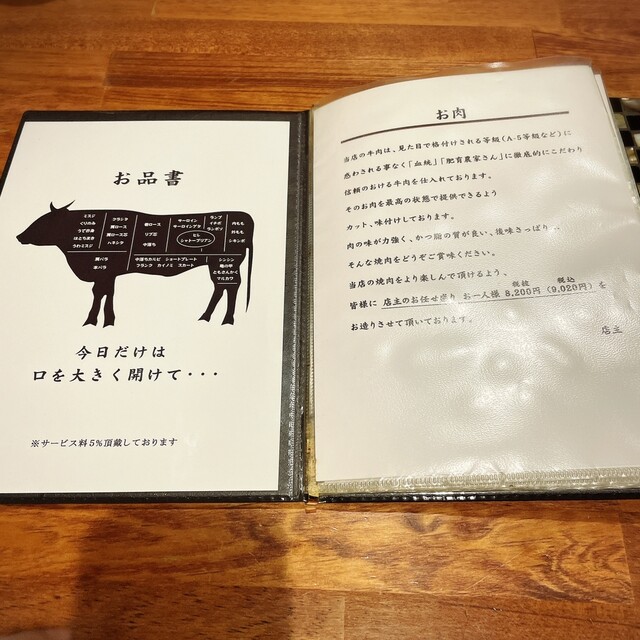 お品書
ミスジ
くりのみ
うで三角
はとちまき
うわミスジ
クラシタ
肩ロース
肩ロース芯
ハネシタ
巻ロース
リブ芯
中落ち
サーロイン
サーロインアタマ
ヒレ
シャトーブリアン
ランプ
イチボ
ランボソ
内もも
外もも
シキンボ
肩バラ
本バラ
中落ちカルビ ショートプレート
フランク カイノミ スカート
シンシン
亀の甲
ともさんかく
マルカワ
今日だけは
口を大きく開けて・・・
※サービス料5%頂戴しております
お肉
当店の牛肉は、見た目で格付けされる等級(A-5等級など)に
惑わされる事なく「血統」「肥育農家さん」に徹底的にこだわり
信頼のおける牛肉を仕入れております。
そのお肉を最高の状態で提供できるよう
カット、味付けしております。
肉の味が力強く、かつ脂の質が良い、後味さっぱり
そんな焼肉をどうぞご賞味ください。
当店の焼肉をより楽しんで頂けるよう、
税抜 税込
皆様に 店主のお任せ盛り お一人様 8,200円 (9,020円) を
お造りさせて頂いております。
店主